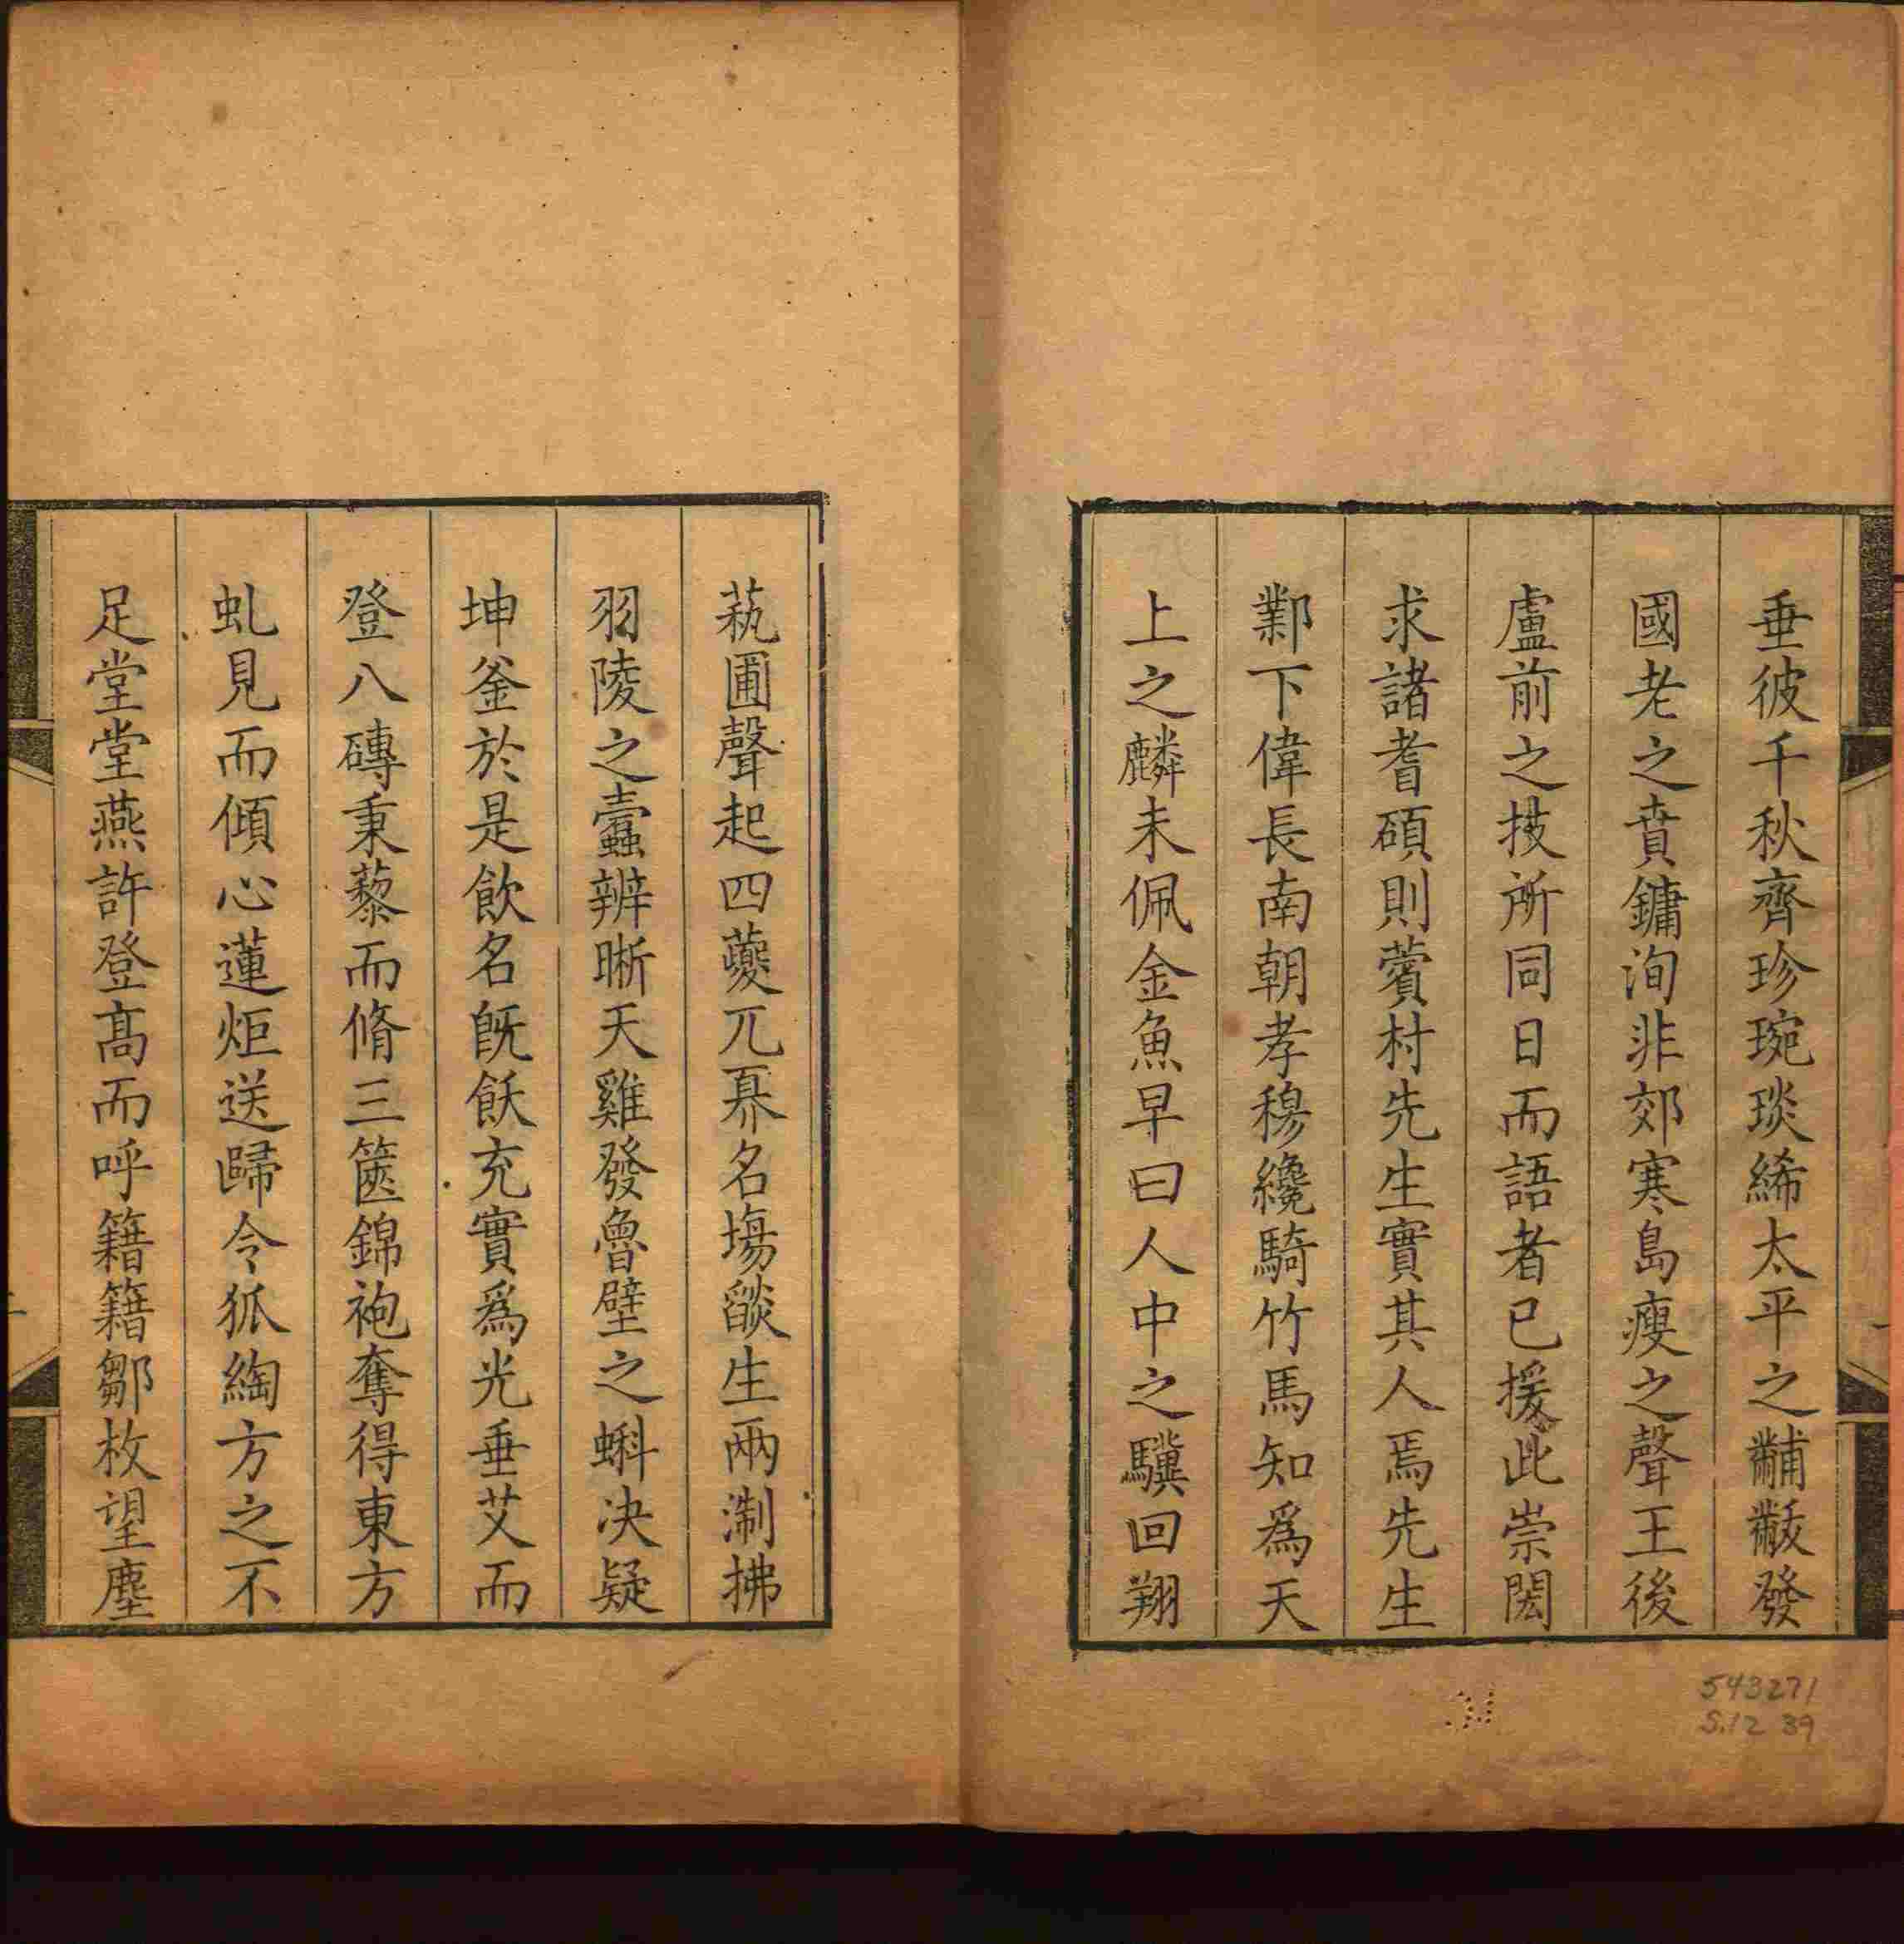 垂彼千秋齊珍琬琰絺太平之黼黻發
國老之賁鏞洵非郊寒島瘦之聲王後
盧前之技所同日而語者已援此崇閎
求諸耆碩則薲村先生實其人焉先生
鄴下偉長南朝孝穆纔騎竹馬知爲天
上之麟未佩金魚早曰人中之驥回翔
蓺圃聲起四夔兀奡名塲燄生兩淛拂
羽陵之蠹辨晣天雞發魯壁之蝌决疑
坤釜於是飲名旣飫充實爲光垂艾而
登八磚秉藜而脩三篋錦袍奪得東方
虬見而傾心蓮炬送歸令狐綯方之不
足堂堂燕許登高而呼籍籍鄒枚望塵
543271
S.12 39